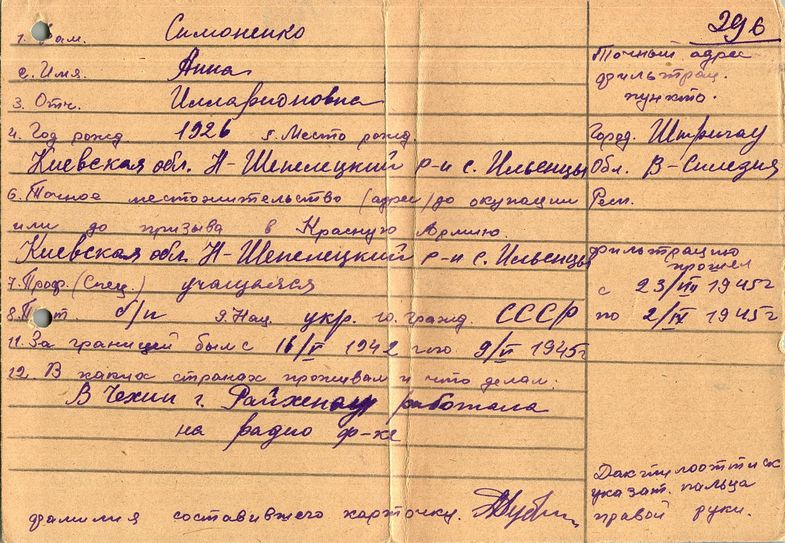 1. Фам. Симоненко
2. Имя. Анна
3. Отч. Илларионовна
4. Год рожд. 1926 5. Место рожд.
Киевская обл. Н-Шепелецкий р-н с. Ильенцы
6. Точное местожительство (адрес) до окупации
или до призыва в Красную Армию.
Киевская обл. Н-Шепелецкий р-н с. Ильенцы
7. Проф. (Спец.) учащаяся
8. Парт. б/п 9. Нац. укр. 10. гражд. СССР
11. За границей был с 16/V 1942 г. по 9/V 1945г
12. В каких странах проживал и что делал.
В Чехии г. Райхенау работала
на радио ф-ке
фамилия составившего карточку.
296
Точный адрес
фильтрац.
пункта.
Город. Штригау
Обл. В-Силезия
Респ.
фильтрацию
прошел
с 23/VIII 1945г
по 2/IX 1945г
Дактилооттиск
указат. пальца
правой руки.